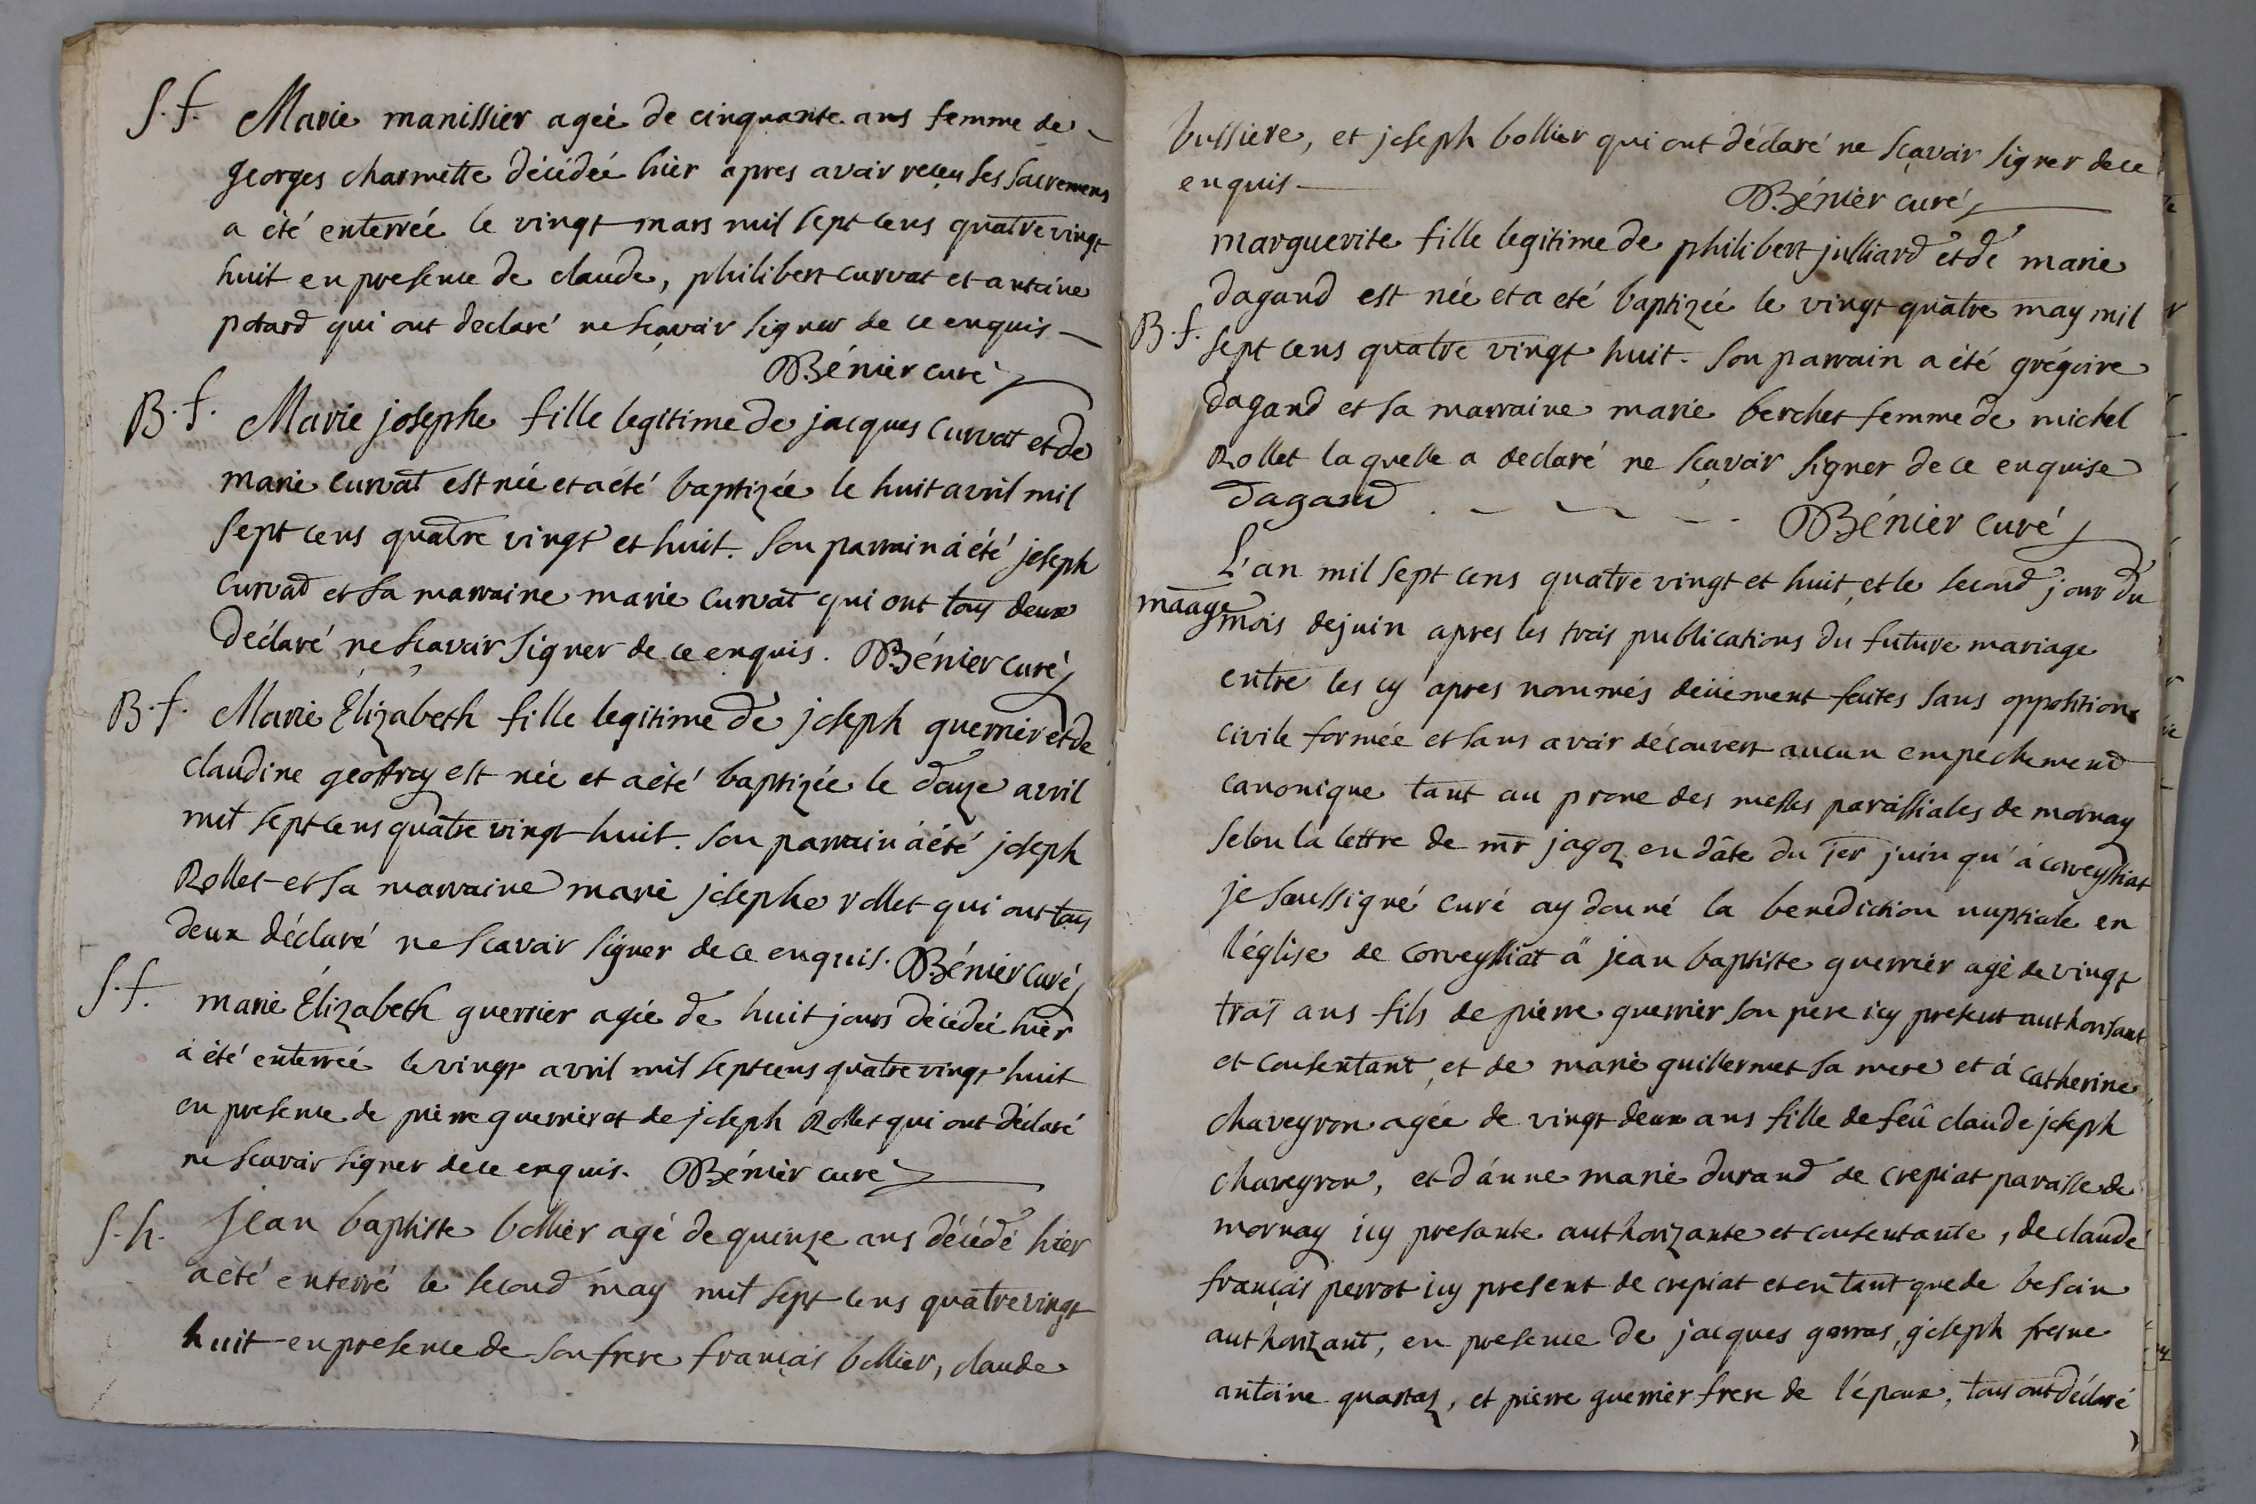 S. f. Marie manissier agée de cinquante ans femme de
georges charmette décédée hier apres avoir reçeu ses sacremens
a été enterrée le vingt mars mil sept cens quatre vingt
huit en presence de claude, philibert curvat et antoine
potard qui ont declaré ne sçavoir signer de ce enquis
Bénier curé
B. f. Marie josephe fille legitime de jacques curvat et de
marie curvat est née et a été baptizée le huit avril mil
sept cens quatre vingt et huit. son parrain a été joseph
curvat et sa marraine marie curvat qui ont tous deux
déclaré ne sçavoir signer de ce enquis. Bénier curé
B. f. Marie Élizabeth fille legitime de joseph guerrier et de
claudine geoffray est née et a été baptizée le douze avril
mil sept cens quatre vingt huit. son parrain a été joseph
Rollet et sa marraine marie josephe rollet qui ont tous
deux déclaré ne scavoir signer de ce enquis. Bénier curé
S. f. marie Élizabeth guerrier agée de huit jours décédée hier
a été enterrée le vingt avril mil sept cens quatre vingt huit
en presence de pierre guerrier et de joseph Rollet qui ont déclaré
ne scavoir signer de ce enquis. Bénier curé
S. h. Jean baptiste bollier agé de quinze ans décédé hier
a été enterré le second may mil sept cens quatre vingt
huit en presence de son frere françois bollier, claude
bussiere, et joseph bollier qui ont déclaré ne sçavoir signer de ce
enquis
Bénier curé
marguerite fille legitime de philibert julliard et de marie
dagand est née et a eté baptizée le vingt quatre may mil
B. f. sept cens quatre vingt huit. son parrain a été grégoire
dagand et sa marraine marie berchet femme de michel
Rollet la quelle a declaré ne sçavoir signer de ce enquise
dagand
Bénier curé
L'an mil sept cens quatre vingt et huit, et le second jour du
maage mois de juin apres les trois publications du future mariage
entre les cy apres nommés deüement faites sans opposition
civile formée et sans avoir découvert aucun empechement
canonique tant au prone des messes paroissiales de mornay
selon la lettre de mr jagoz en date du 1er juin qu'à corveyssiat
je soussigné curé ay donné la benediction nuptiale en
l'église de corveyssiat a jean baptiste guerrier agé de vingt
trois ans fils de pierre guerrier son pere icy present authorisant
et consentant, et de marie guillermet sa mere et à catherine
chaveyron agée de vingt deux ans fille de feû claude joseph
chaveyron, et d'anne marie durand de crepiat paroisse de
mornay icy presante authorizante et consentante, de claude
françois perrot icy present de crepiat et en tant que de besoin
authorizant, en presence de jacques gorras, joseph fresne
antoine quartaz, et pierre guerrier frere de l'époux, tous ont déclaré